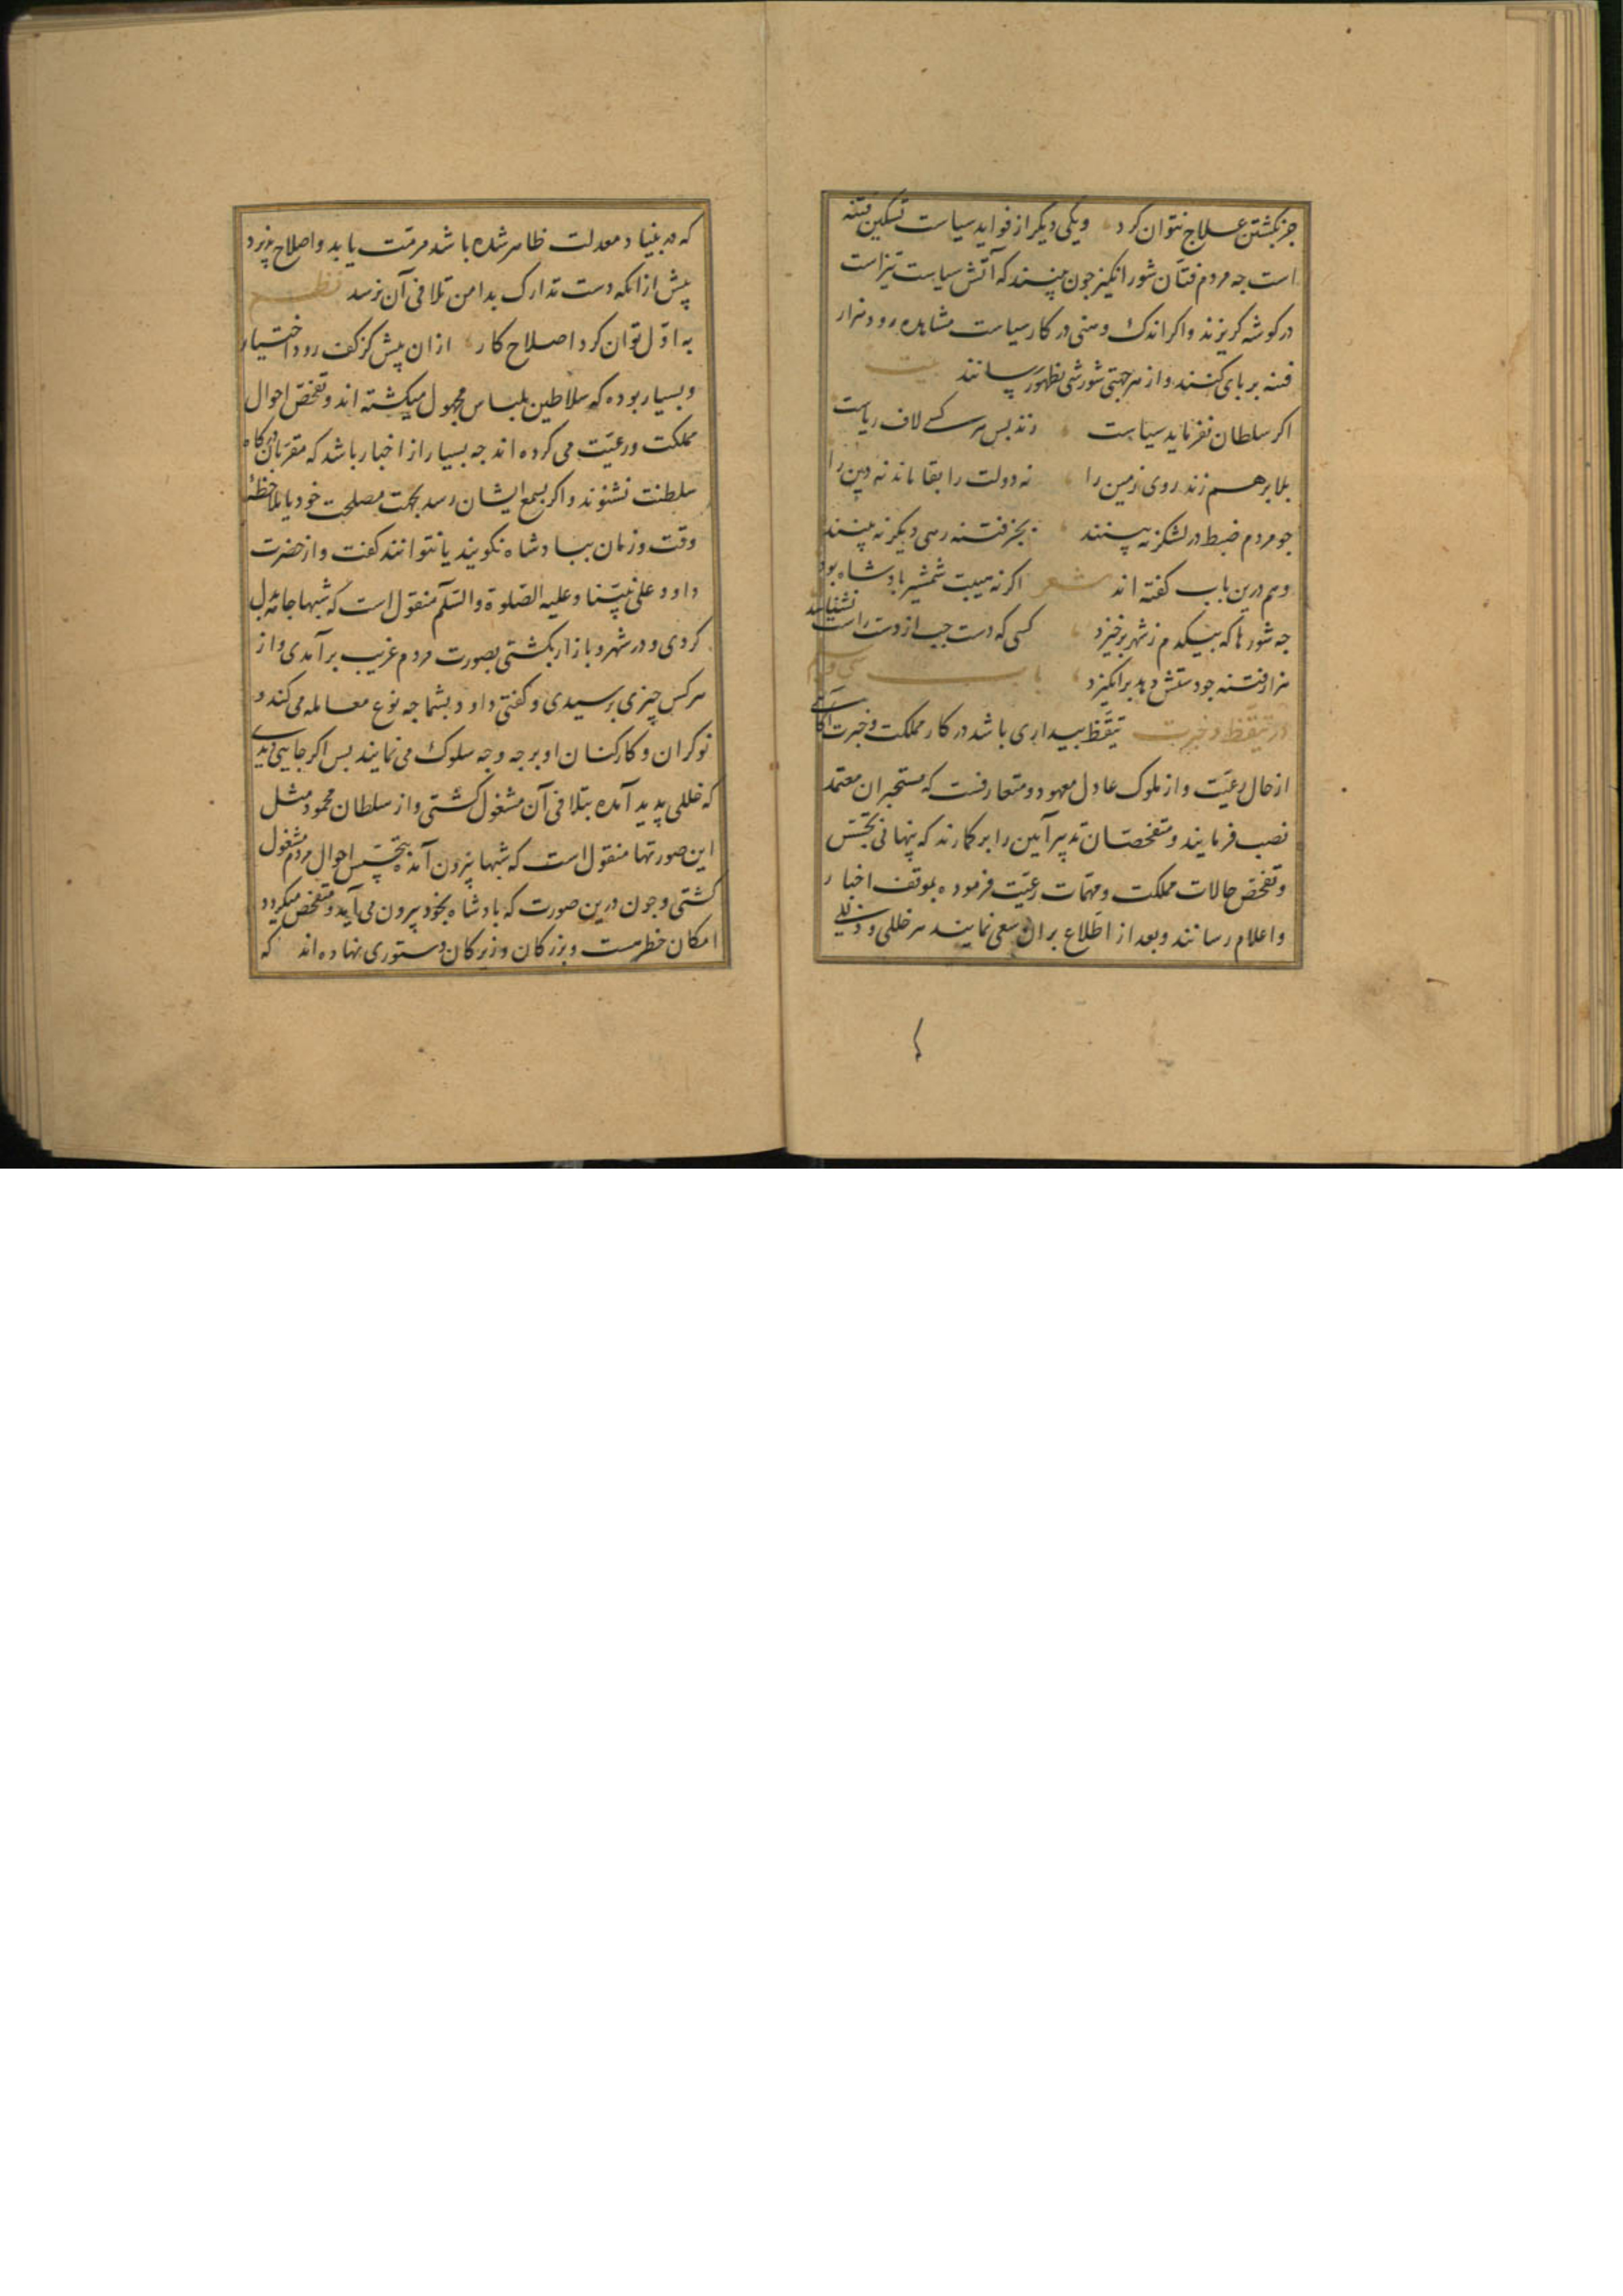 جز بکشتن علاج نتوان کرد ویکی دیکر از فواید سیاست تسکین فتنه
است جه مردم فتان شور انکیز جون بینند که آتش سیاست تیز است
در کوشه کریزند واکر اندک وهنی در کار سیاست مشاهده رود هزار
فتنه بر پای کنند واز هر جهتی شورشی بظهور رسانند بیت
اکر سلطان نفرماید سیاست زند بس هر کسے لاف ریاست
بلا برهم زند روی زمین را نه دولت را بقا ماند نه دین را
جو مردم ضبط در لشکر نه بینند بجز فتنه رهی دیکر نه بینند
وهم درین باب کفته اند شعر اکر نه هیبت شمشیر بادشاه بود
جه شورها که بیکدم ز شهر برخیزد کسی که دست جپ از دست راست نشناسد
هزار فتنه جو دستش دهد برانکیزد باب سی و
در تیقظ و خبرت تیقظ بیداری باشد در کار مملکت وخبرت آکاهی
از حال رعیت واز ملوک عادل معهود ومتعارفست که مستخبران معتمد
نصب فرمایند ومتفحصان تدبیر آیین را بر کمارند که پنهانی تجسس
وتفحص حالات مملکت ومهمات رعیت فرموده بموقف اخبار
واعلام رسانند وبعد از اطلاع بران سعی نمایند هر خللی و
که در بنیاد معدلت ظاهر شده باشد مرمت یابد واصلاح پذیرد
پیش از انکه دست تدارک بدامن تلافی آن نرسد نظم
به اول توان کرد اصلاح کار ازان پیش کز کف رود اختیار
وبسیار بوده که سلاطین بلباس مجهول میکشته اند وتفحص احوال
مملکت ورعیت می کرده اند جه بسیار از اخبار باشد که مقربان درکاه
سلطنت نشنوند واکر بسمع ایشان رسد بجهت مصلحت خود یا بملاحظهٔ
وقت وزمان ببادشاه نکویند یا نتوانند کفت واز حضرت
داود علی نبینا وعلیه الصلوة والسلم منقول است که شبها جامه بدل
کردی ودر شهر وبازار بکشتی بصورت مردم غریب برآمدی واز
هر کس چیزی برسیدی وکفتی داود بشما جه نوع معامله می کند و
نوکران وکارکنان او بر جه وجه سلوک می نمایند بس اکر جایی دیدی
که خللی پدید آمده بتلافی آن مشغول کشتی واز سلطان محمود مثل
این صورتها منقول است که شبها بیرون آمده بتجسس احوال مردم مشغول
کشتی وجون درین صورت که بادشاه بخود بیرون می آید ومتفحص میکردد
امکان خطر هست وبزرکان وزیرکان دستوری نهاده اند که